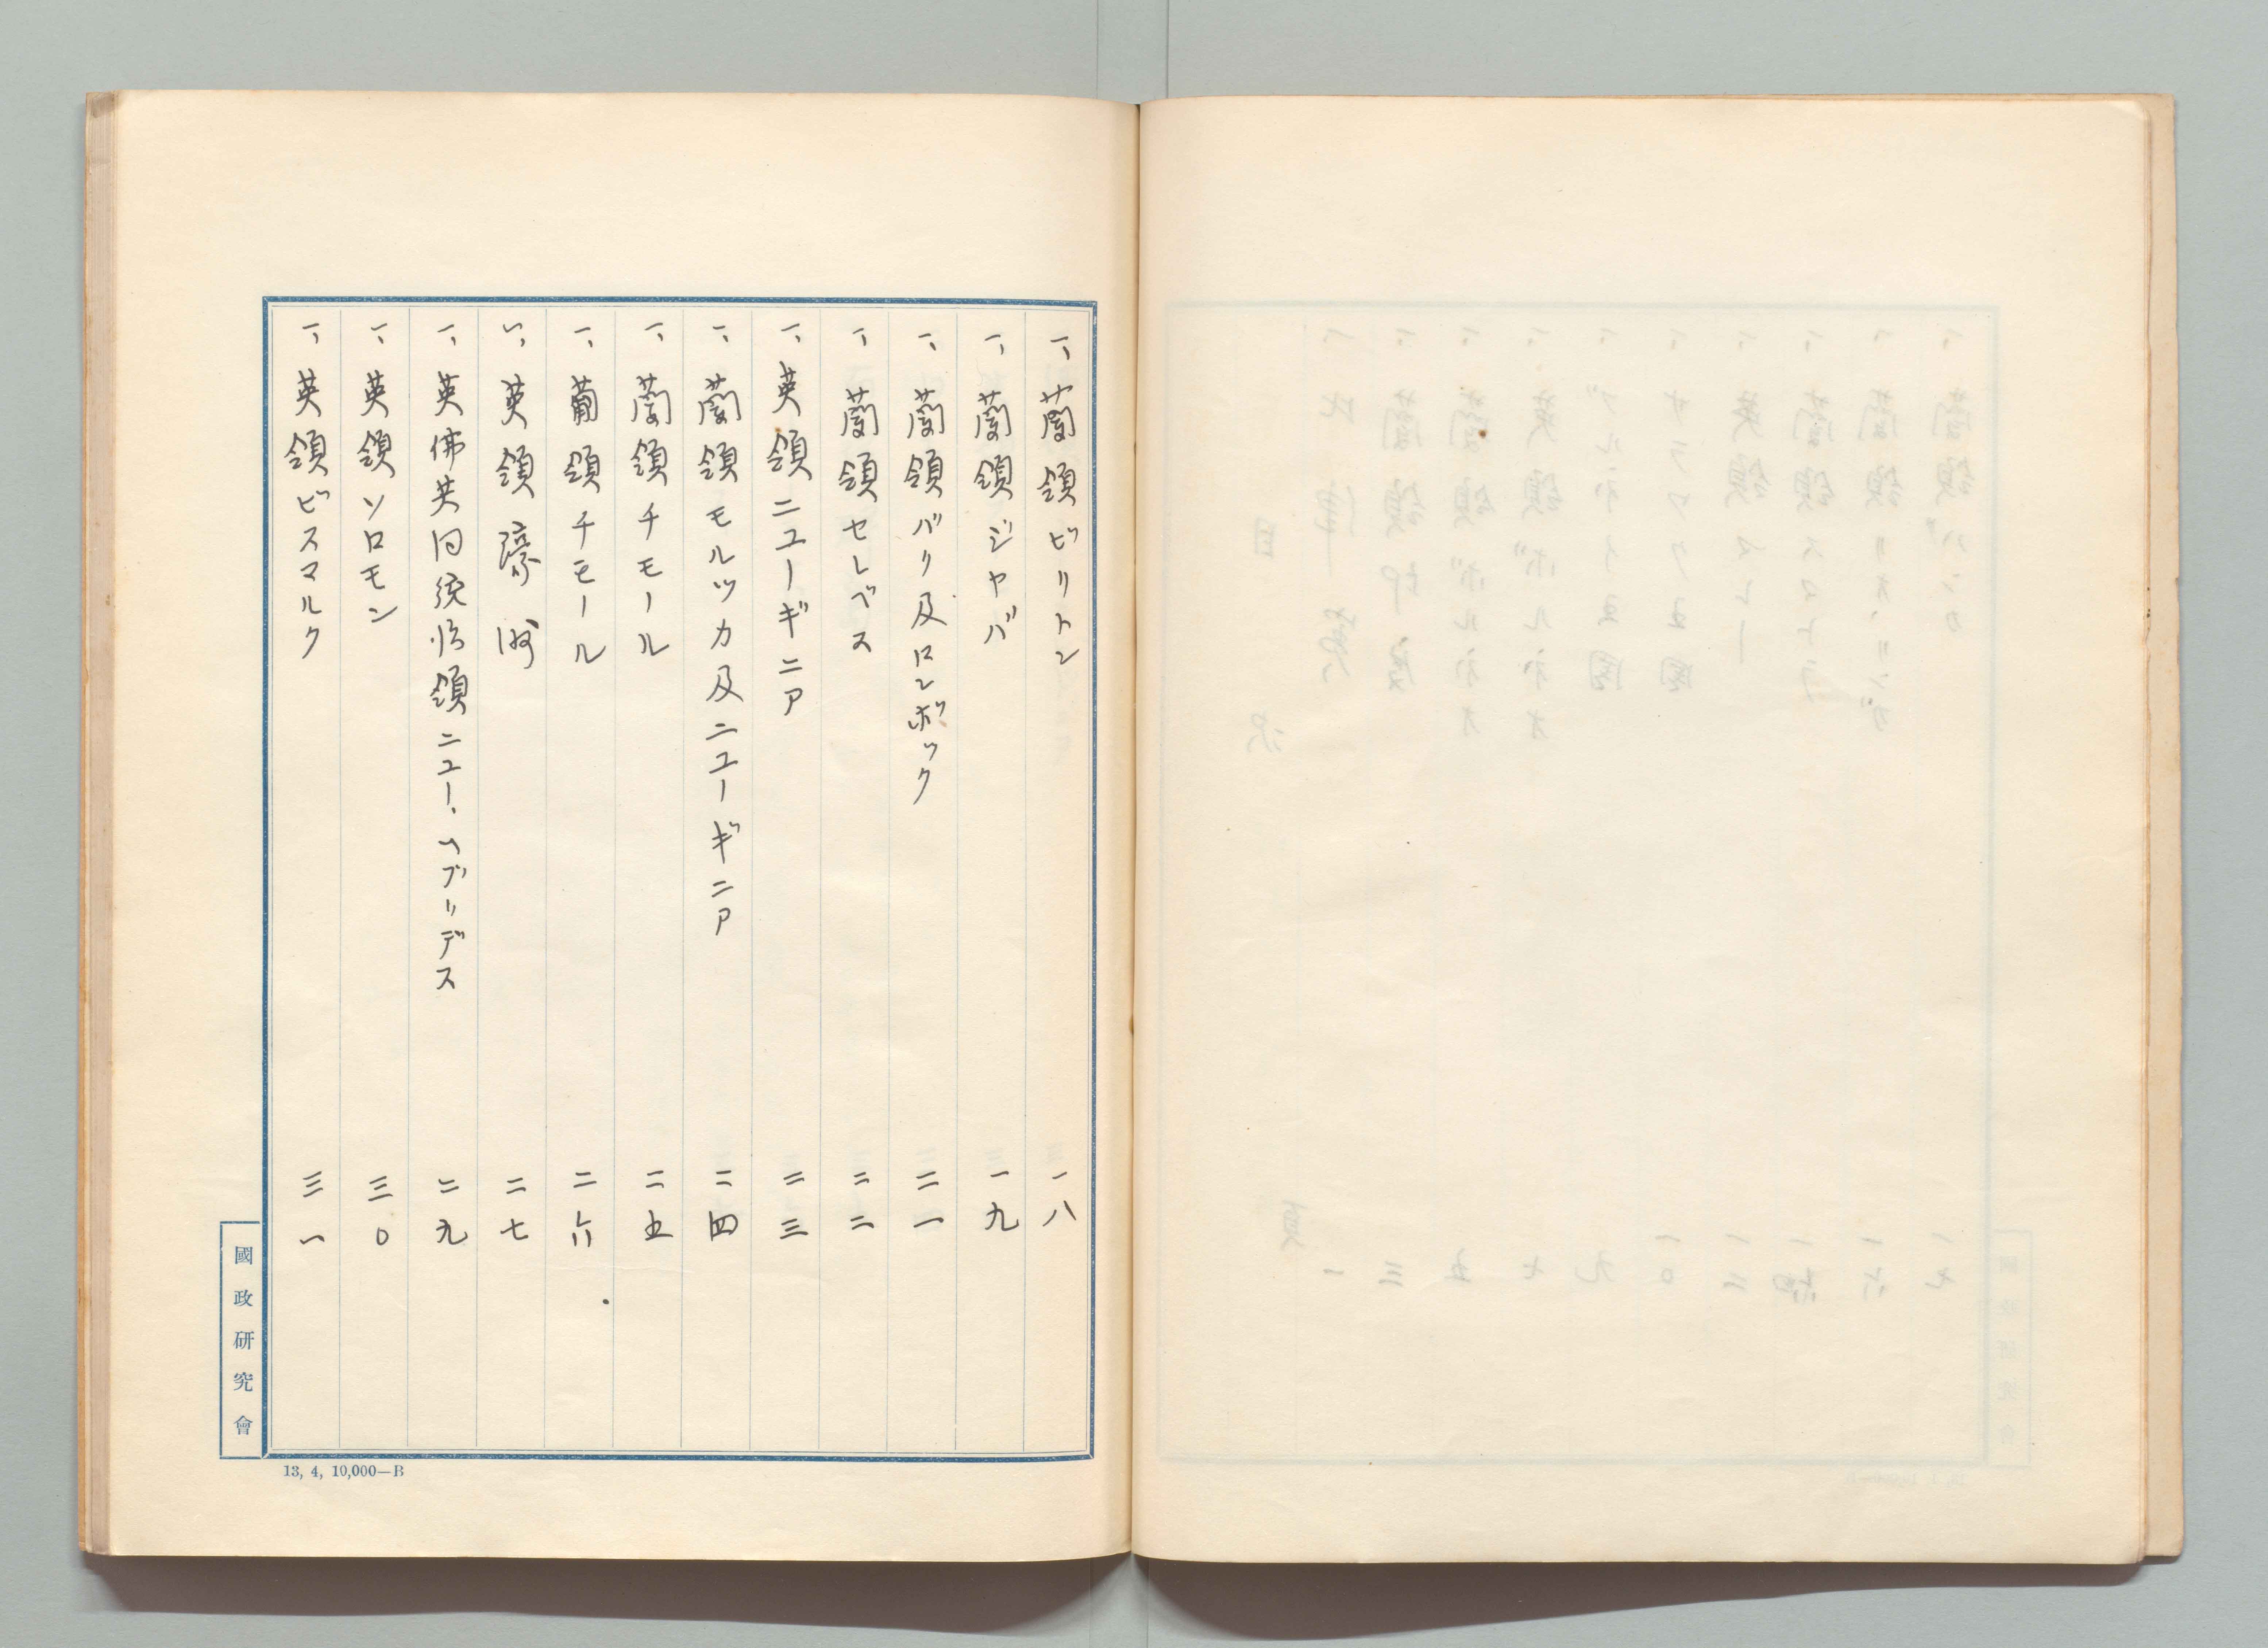 一、蘭領ビリトン 一八
一、蘭領ジャバ 一九
一、蘭領バリ及ロンボック 二一
一、蘭領セレベス 二二
一、英領ニューギニア 二三
一、蘭領モルッカ及ニューギニア 二四
一、蘭領チモール 二五
一、葡領チモール 二六
一、英領濠洲 二七
一、英佛共同統治領ニュー、ヘブリデス 二九
一、英領ソロモン 三〇
一、英領ビスマルク 三一
國政研究會
13, 4, 10,000—B